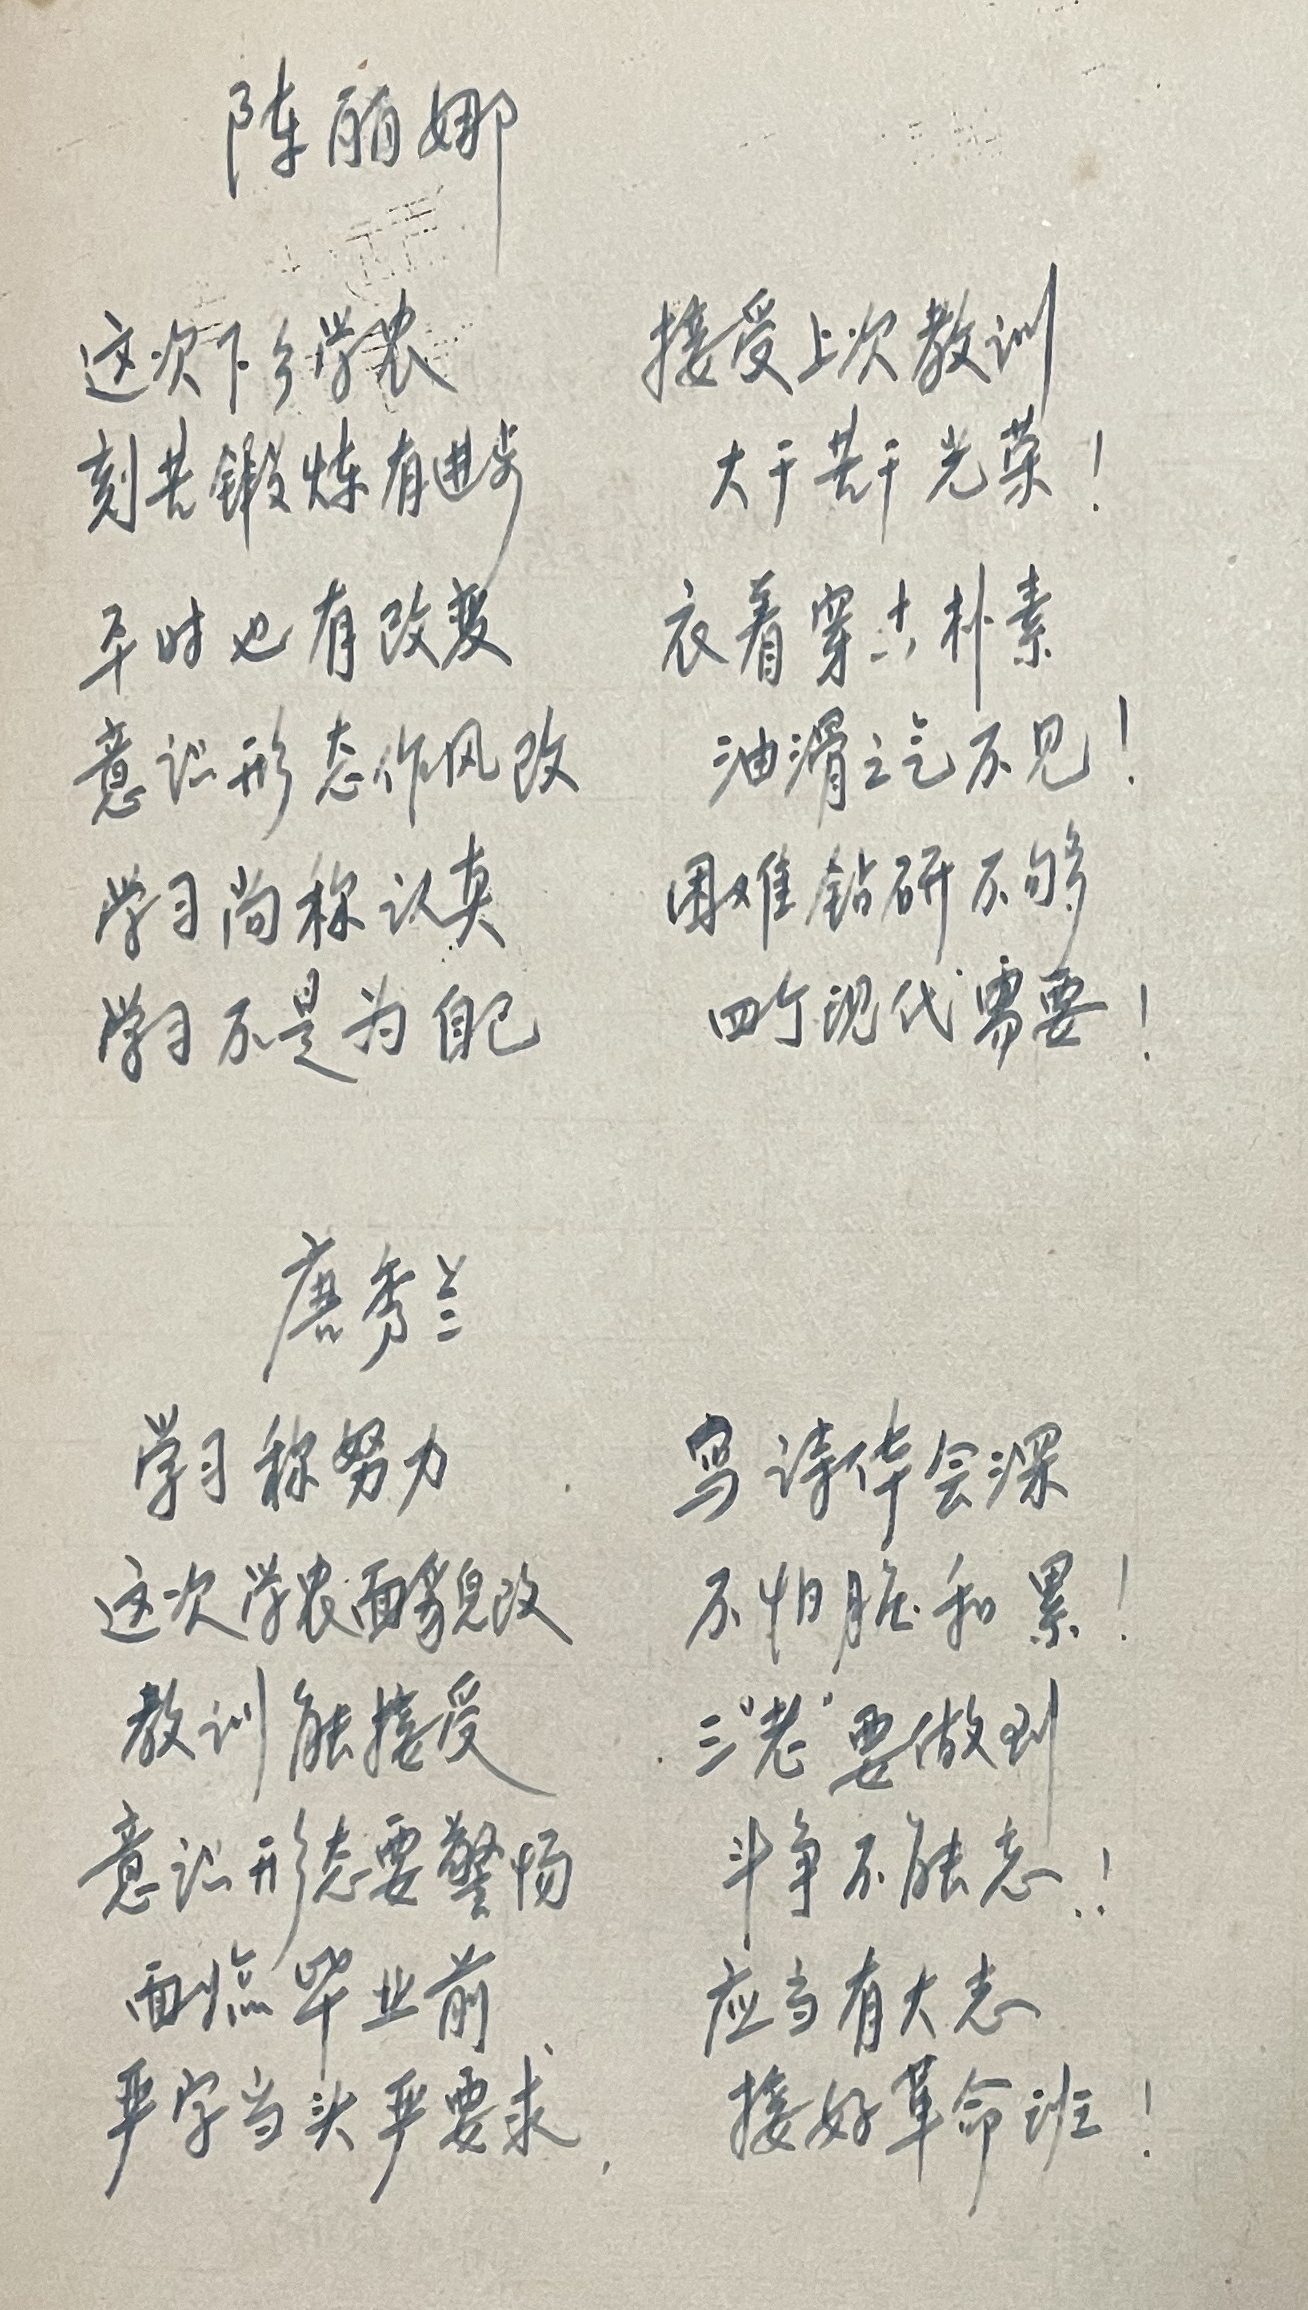 陈丽娜
这次下乡学农 接受上次教训
刻苦锻炼有进步 大干苦干光荣！
平时也有改变 衣着穿去朴素
意识形态作风改 油滑之气不见！
学习尚称认真 困难钻研不够
学习不是为自己 四个现代需要！
唐秀兰
学习称努力 写诗体会深
这次学农面貌改 不怕脏和累！
教训能接受 三"老"要做到
意识形态要警惕 斗争不能忘！
面临毕业前 应当有大志
严字当头严要求， 接好革命班！